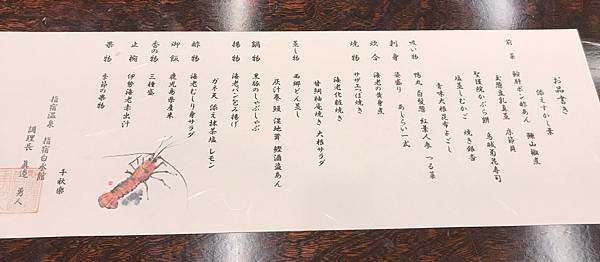 お品書き
前菜 鮟肝ポン酢あん 鰊山椒煮
添えすかし素
玉葱豆乳豆富 赤節貝
聖護院かぶら鮨 烏城菊花寿司
塩蒸しむかご 焼き銀杏
青味大根昆布よごし
吸い物 鴨丸 白髪葱 紅葉人参 つる菜
刺身 姿盛り あしらい一式
炊合 海老の黄身煮
焼物 サザエつぼ焼き
海老化粧焼き
甘鯛柚庵焼き 大根サラダ
蒸し物 西郷どん蒸し
灰汁巻 鰻 湿地茸 鰹酒盗あん
鍋物 黒豚のしゃぶしゃぶ
揚物 海老パン包み揚げ
ガネ天 添え抹茶塩 レモン
酢物 海老むしり身サラダ
御飯 鹿児島県産米
香の物 三種盛
止椀 伊勢海老赤出汁
果物 季節の果物
千秋楽
指宿温泉 指宿白水館
調理長 眞邉 勇人